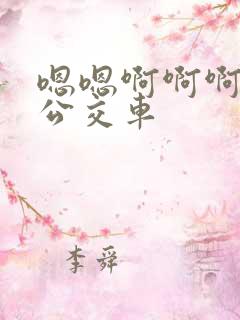 嗯嗯啊啊啊
公交车
李舜